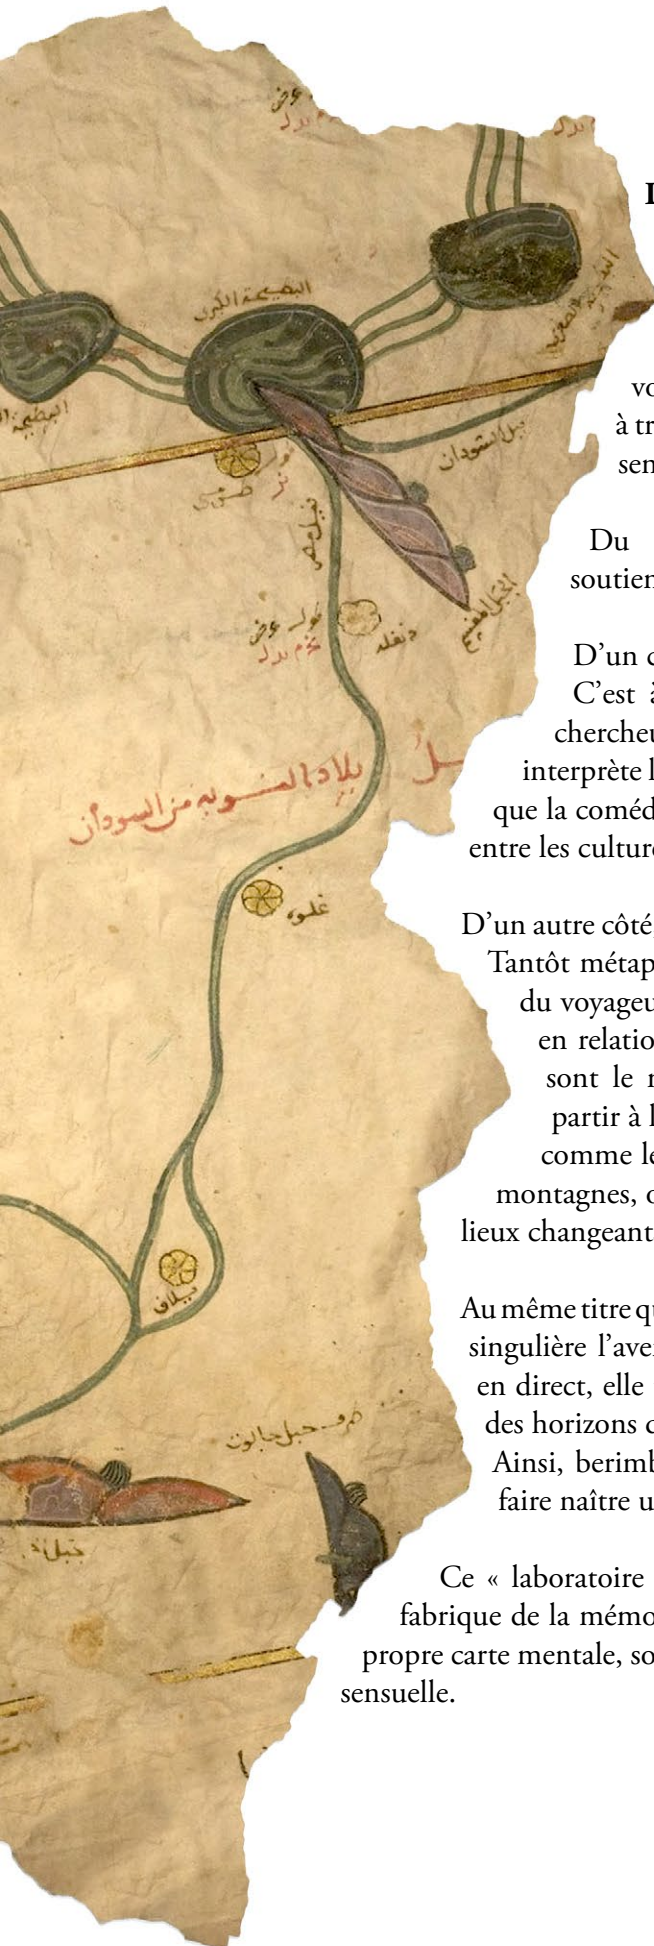 البطيحة الكبرى
نيل السودان
نيل مصر
دنقله
بلاد النوبه من السودان
علوه
بيلاق
طرف جبل جالوت
vo
à tr
sen
Du
soutien
D’un c
C’est à
chercheu
interprète l
que la coméd
entre les culture
D’un autre côté,
Tantôt métap
du voyageu
en relatio
sont le
partir à l
comme le
montagnes, o
lieux changeant
Au même titre qu
singulière l’ave
en direct, elle
des horizons
Ainsi, berimb
faire naître u
Ce « laboratoire
fabrique de la mémo
propre carte mentale, so
sensuelle.